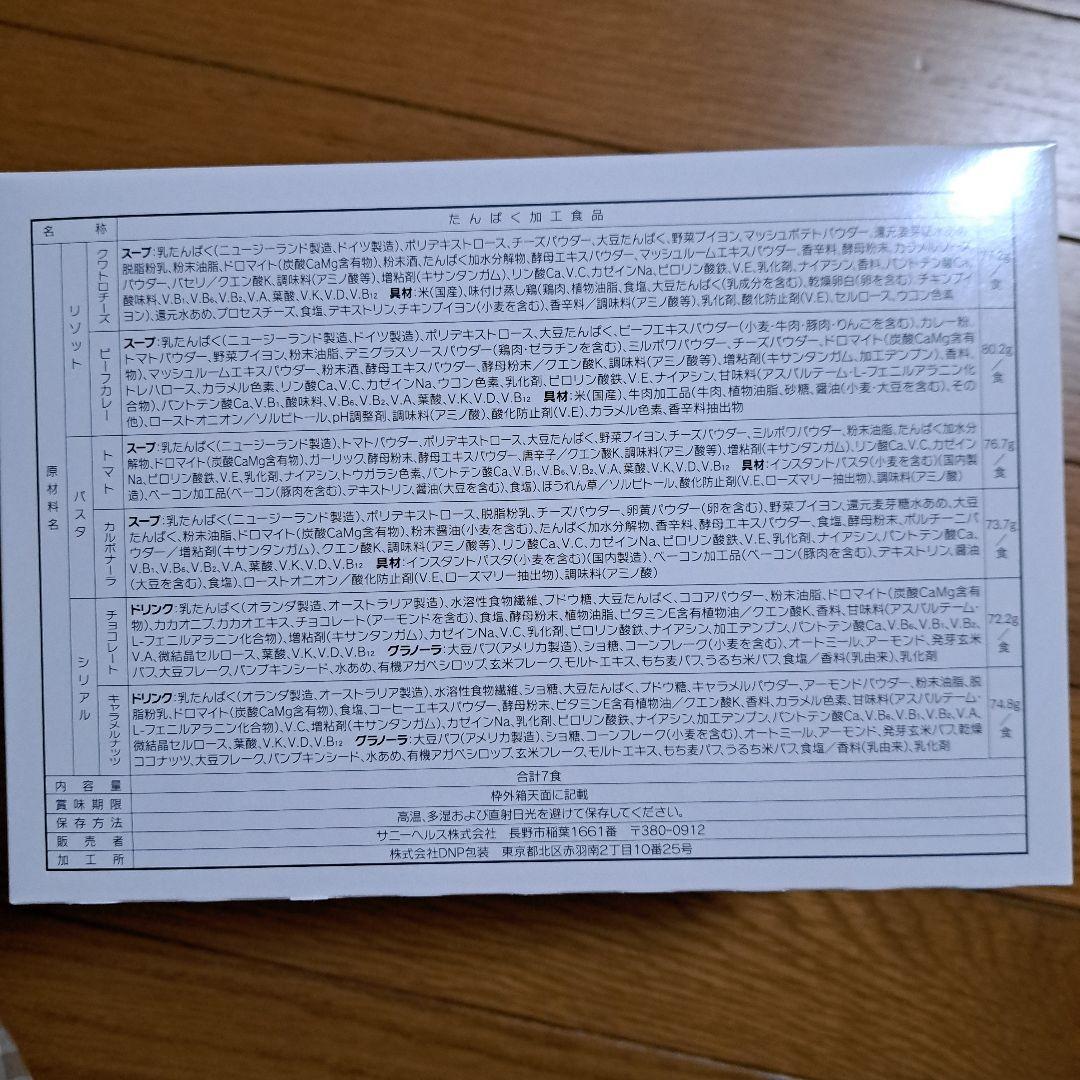 名称 たんぱく加工食品
原材料名
リゾット
クワトロチーズ
スープ:乳たんぱく(ニュージーランド製造、ドイツ製造)、ポリデキストロース、チーズパウダー、大豆たんぱく、野菜ブイヨン、マッシュポテトパウダー、還元麦芽糖水あめ、
脱脂粉乳、粉末油脂、ドロマイト(炭酸CaMg含有物)、粉末酒、たんぱく加水分解物、酵母エキスパウダー、マッシュルームエキスパウダー、香辛料、酵母粉末、カラメルソース
パウダー、パセリ/クエン酸K、調味料(アミノ酸等)、増粘剤(キサンタンガム)、リン酸Ca、V.C、カゼインNa、ピロリン酸鉄、V.E、乳化剤、ナイアシン、香料、パントテン酸Ca、
酸味料、V.B₁、V.B₆、V.B₂、V.A、葉酸、V.K、V.D、V.B₁₂ 具材:米(国産)、味付け蒸し鶏(鶏肉、植物油脂、食塩、大豆たんぱく(乳成分を含む)、乾燥卵白(卵を含む)、チキンブイ
ヨン)、還元水あめ、プロセスチーズ、食塩、デキストリン、チキンブイヨン(小麦を含む)、香辛料/調味料(アミノ酸等)、乳化剤、酸化防止剤(V.E)、セルロース、ウコン色素
/食
ビーフカレー
スープ:乳たんぱく(ニュージーランド製造、ドイツ製造)、ポリデキストロース、大豆たんぱく、ビーフエキスパウダー(小麦・牛肉・豚肉・りんごを含む)、カレー粉、
トマトパウダー、野菜ブイヨン、粉末油脂、デミグラスソースパウダー(鶏肉・ゼラチンを含む)、ミルポワパウダー、チーズパウダー、ドロマイト(炭酸CaMg含有
物)、マッシュルームエキスパウダー、粉末酒、酵母エキスパウダー、酵母粉末/クエン酸K、調味料(アミノ酸等)、増粘剤(キサンタンガム、加工デンプン)、香料、
トレハロース、カラメル色素、リン酸Ca、V.C、カゼインNa、ウコン色素、乳化剤、ピロリン酸鉄、V.E、ナイアシン、甘味料(アスパルテーム・L-フェニルアラニン化
合物)、パントテン酸Ca、V.B₁、酸味料、V.B₆、V.B₂、V.A、葉酸、V.K、V.D、V.B₁₂ 具材:米(国産)、牛肉加工品(牛肉、植物油脂、砂糖、醤油(小麦・大豆を含む)、その
他)、ローストオニオン/ソルビトール、pH調整剤、調味料(アミノ酸)、酸化防止剤(V.E)、カラメル色素、香辛料抽出物
80.2g/食
パスタ
トマト
スープ:乳たんぱく(ニュージーランド製造)、トマトパウダー、ポリデキストロース、大豆たんぱく、野菜ブイヨン、チーズパウダー、ミルポワパウダー、粉末油脂、たんぱく加水分
解物、ドロマイト(炭酸CaMg含有物)、ガーリック、酵母粉末、酵母エキスパウダー、唐辛子/クエン酸K、調味料(アミノ酸等)、増粘剤(キサンタンガム)、リン酸Ca、V.C、カゼイン
Na、ピロリン酸鉄、V.E、乳化剤、ナイアシン、トウガラシ色素、パントテン酸Ca、V.B₁、V.B₆、V.B₂、V.A、葉酸、V.K、V.D、V.B₁₂ 具材:インスタントパスタ(小麦を含む)(国内製
造)、ベーコン加工品(ベーコン(豚肉を含む)、デキストリン、醤油(大豆を含む)、食塩)、ほうれん草/ソルビトール、酸化防止剤(V.E、ローズマリー抽出物)、調味料(アミノ酸)
76.7g/食
カルボナーラ
スープ:乳たんぱく(ニュージーランド製造)、ポリデキストロース、脱脂粉乳、チーズパウダー、卵黄パウダー(卵を含む)、野菜ブイヨン、還元麦芽糖水あめ、大豆
たんぱく、粉末油脂、ドロマイト(炭酸CaMg含有物)、粉末醤油(小麦を含む)、たんぱく加水分解物、香辛料、酵母エキスパウダー、食塩、酵母粉末、ポルチーニパ
ウダー/増粘剤(キサンタンガム)、クエン酸K、調味料(アミノ酸等)、リン酸Ca、V.C、カゼインNa、ピロリン酸鉄、V.E、乳化剤、ナイアシン、パントテン酸Ca、
V.B₁、V.B₆、V.B₂、V.A、葉酸、V.K、V.D、V.B₁₂ 具材:インスタントパスタ(小麦を含む)(国内製造)、ベーコン加工品(ベーコン(豚肉を含む)、デキストリン、醤油
(大豆を含む)、食塩)、ローストオニオン/酸化防止剤(V.E、ローズマリー抽出物)、調味料(アミノ酸)
73.7g/食
シリアル
チョコレート
ドリンク:乳たんぱく(オランダ製造、オーストラリア製造)、水溶性食物繊維、ブドウ糖、大豆たんぱく、ココアパウダー、粉末油脂、ドロマイト(炭酸CaMg含有
物)、カカオニブ、カカオエキス、チョコレート(アーモンドを含む)、食塩、酵母粉末、植物油脂、ビタミンE含有植物油/クエン酸K、香料、甘味料(アスパルテーム・
L-フェニルアラニン化合物)、増粘剤(キサンタンガム)、カゼインNa、V.C、乳化剤、ピロリン酸鉄、ナイアシン、加工デンプン、パントテン酸Ca、V.B₆、V.B₁、V.B₂、
V.A、微結晶セルロース、葉酸、V.K、V.D、V.B₁₂ グラノーラ:大豆パフ(アメリカ製造)、ショ糖、コーンフレーク(小麦を含む)、オートミール、アーモンド、発芽玄米
パフ、大豆フレーク、パンプキンシード、水あめ、有機アガベシロップ、玄米フレーク、モルトエキス、もち麦パフ、うるち米パフ、食塩/香料(乳由来)、乳化剤
72.2g/食
キャラメルナッツ
ドリンク:乳たんぱく(オランダ製造、オーストラリア製造)、水溶性食物繊維、ショ糖、大豆たんぱく、ブドウ糖、キャラメルパウダー、アーモンドパウダー、粉末油脂、脱
脂粉乳、ドロマイト(炭酸CaMg含有物)、食塩、コーヒーエキスパウダー、酵母粉末、ビタミンE含有植物油/クエン酸K、香料、カラメル色素、甘味料(アスパルテーム・
L-フェニルアラニン化合物)、V.C、増粘剤(キサンタンガム)、カゼインNa、乳化剤、ピロリン酸鉄、ナイアシン、加工デンプン、パントテン酸Ca、V.B₆、V.B₁、V.B₂、V.A、
微結晶セルロース、葉酸、V.K、V.D、V.B₁₂ グラノーラ:大豆パフ(アメリカ製造)、ショ糖、コーンフレーク(小麦を含む)、オートミール、アーモンド、発芽玄米パフ、乾燥
ココナッツ、大豆フレーク、パンプキンシード、水あめ、有機アガベシロップ、玄米フレーク、モルトエキス、もち麦パフ、うるち米パフ、食塩/香料(乳由来)、乳化剤
74.8g/食
内容量 合計7食
賞味期限 枠外箱天面に記載
保存方法 高温、多湿および直射日光を避けて保存してください。
販売者 サニーヘルス株式会社 長野市稲葉1661番 〒380-0912
加工所 株式会社DNP包装 東京都北区赤羽南2丁目10番25号